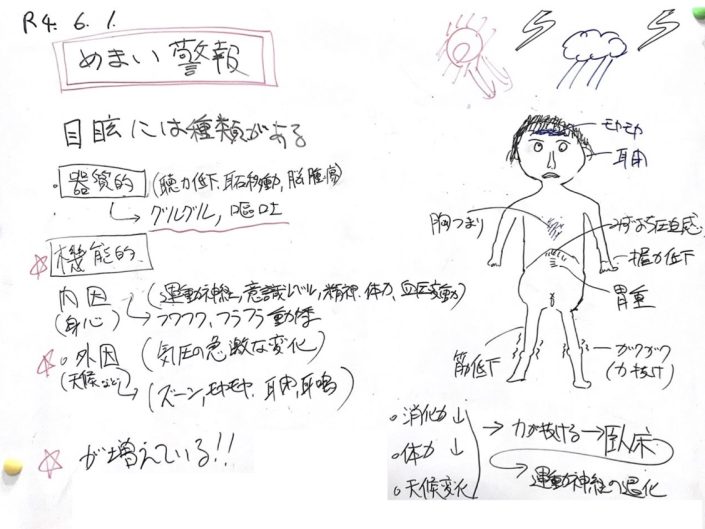 R4. 6. 1.
めまい警報
目眩には種類がある
・器質的 (聴力低下、耳石移動、脳腫瘍)
→グルグル, 嘔吐
☆機能的
内因 (身心)
(運動神経, 意識レベル, 精神・体力, 血圧変動)
フワフワ, フラフラ 動揺
☆○外因 (気圧の急激な変化)
(天候など) →(ズーン, モヤモヤ, 耳閉, 耳鳴)
☆ が増えている!!
モヤモヤ
耳閉
胸つまり
みずおち圧迫感
握力低下
胃重
筋低下
ガクガク
(力抜け)
○消化力↓
○体力↓
○天候変化
→力が抜ける→臥床
→運動神経の退化